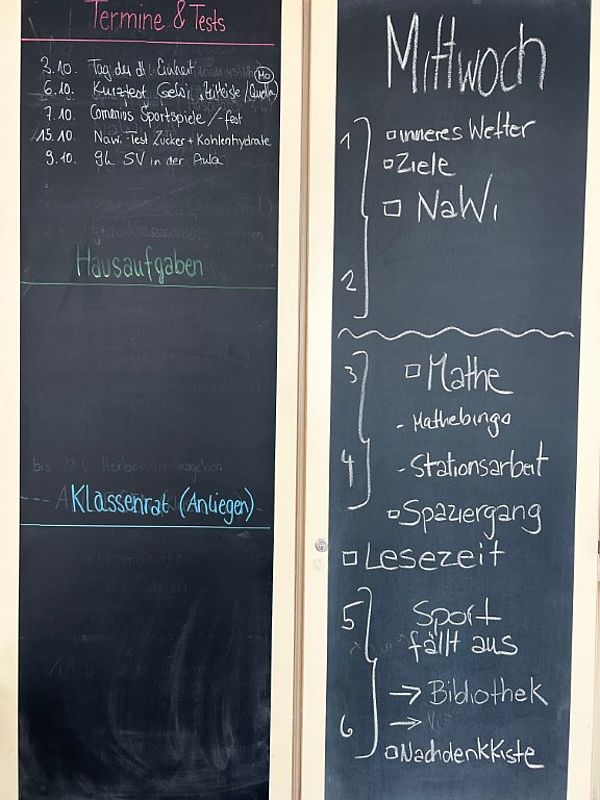 Termine & Tests
3.10. Tag der dt. Einheit
(Mo)
6.10. Kurztest GeWi Zeitleiste (Quellen)
7.10. Comenius Sportspiele/-fest
15.10. NaWi Test Zucker + Kohlenhydrate
9.10. 9h SV in der Aula
Hausaufgaben
Klassenrat (Anliegen)
Mittwoch
1 □ inneres Wetter
□ Ziele
□ NaWi
2
3 □ Mathe
- Mathebingo
4 - Stationsarbeit
□ Spaziergang
□ Lesezeit
5 Sport
fällt aus
→ Bibliothek
6 →
□ Nachdenkkiste